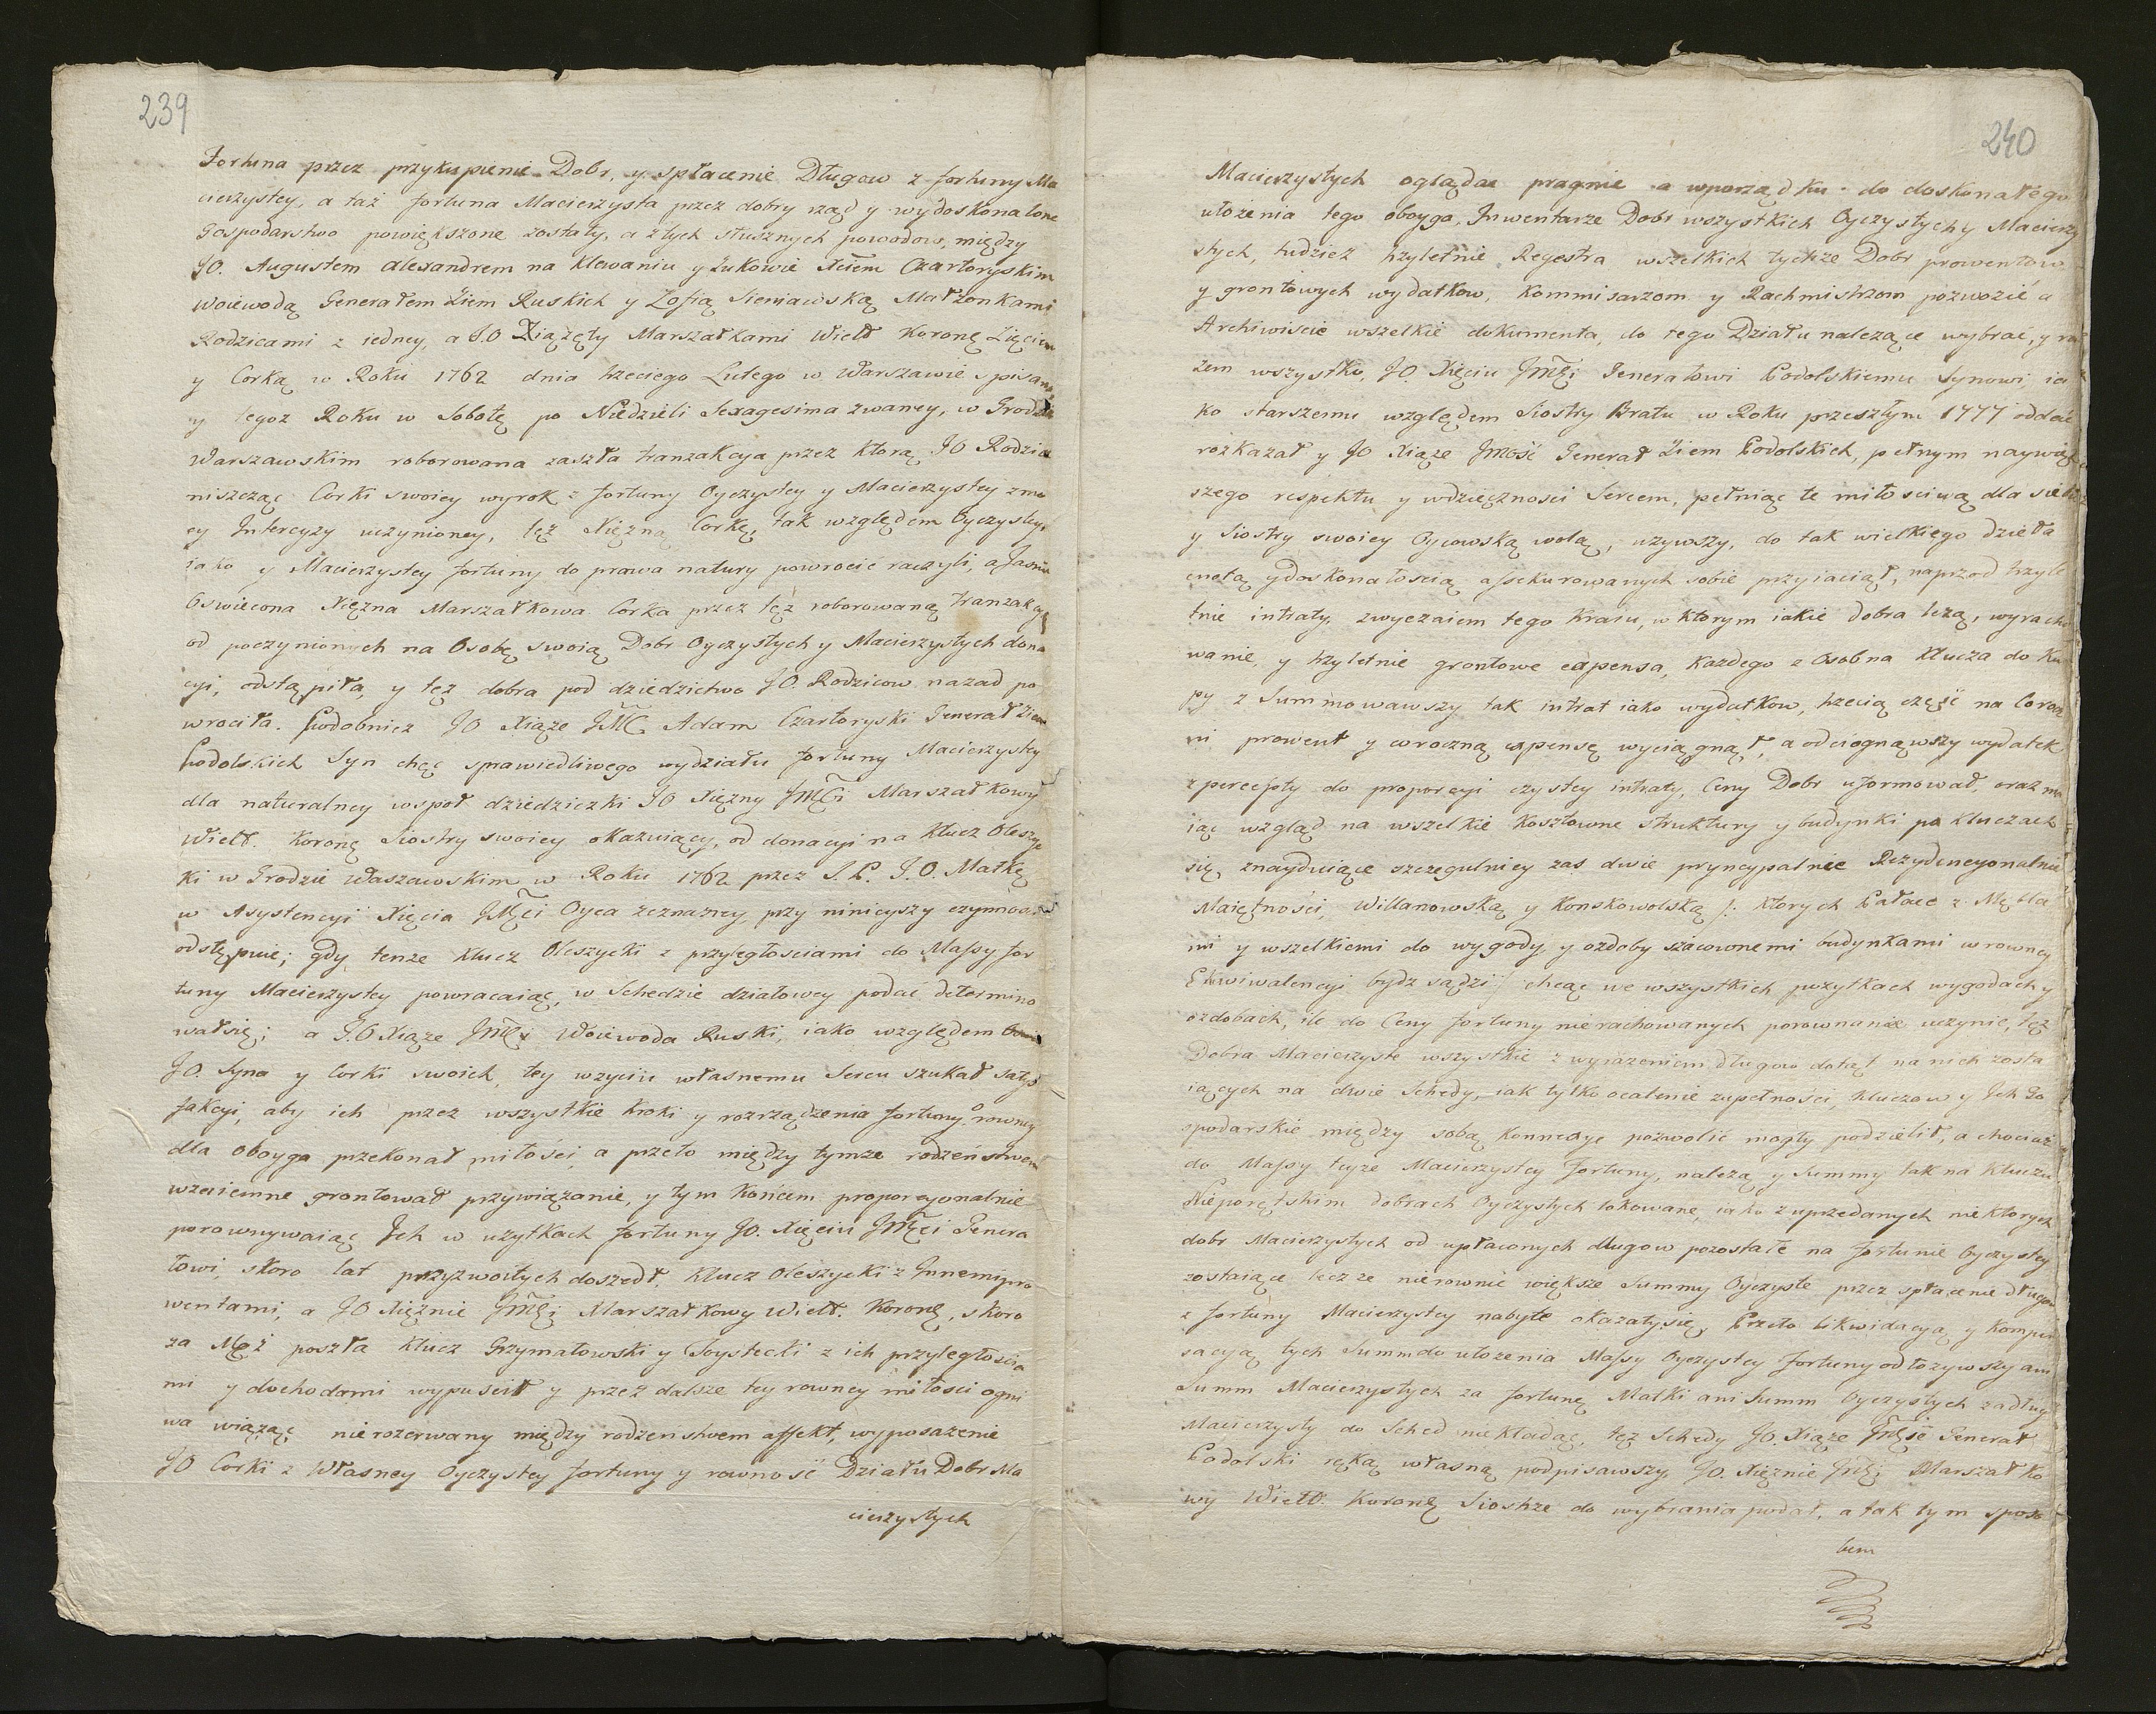 239
Fortuna przez przykupienie Dobr, y spłacenie Długow z fortuny Ma
cierzystey, a taż fortuna Macierzysta przez dobry rząd y wydoskonalone
Gospodarstwo powiększone zostały, a z tych słusznych powodow, między
JO. Augustem Alexandrem na Klewaniu y Żukowie Xciem Czartoryskim
Woiewodą Generałem Ziem Ruskich y Zofią Sieniawską Małżonkami
Rodzicami z iedney, a J.O Xiążęty Marszałkami Wielk Koronę Zięciem
y Corką w Roku 1762 dnia trzeciego Lutego w Warszawie spisana,
y tegoz Roku w Sobotę po Niedzieli Sexagesima zwaney, w Grodzie
Warszawskim roborowana zaszła tranzakcya przez ktorą JO Rodzice
niszcząc Corki swoiey wyrok z fortuny Oyczystey y Macierzystey zmo
cy Intercyzy uczynioney, tęż Xiężnę Corkę, tak względem Oyczystey,
iako y Macierzystey fortuny do prawa natury powrocić raczyli, a Jasnie
Oswiecona Xiężna Marszałkowa Corka przez tęż roborowaną tranzakcyą
od poczynionych na Osobę swoią Dobr Oyczystych y Macierzystych dona
cyi, odstąpiła, y też dobra pod dziedzictwo JO. Rodzicow nazad po
wrociła. Podobnież JO Xiąże JMC Adam Czartoryski Generał Ziem
Podolskich Syn chęć sprawiedliwego wydziału fortuny Macierzystey
dla naturalney wspoł dziedziczki JO Xiężny JMCi Marszałkowy
Wielk. Koronę Siostry swoiey okazuiący, od donacyi na Klucz Oleszyc
ki w Grodzie Waszawskim w Roku 1762 przez S.P. J.O. Matkę
w Asystencyi Xięcia JMCi Oyca zeznaney przy ninieyszy czynnosci
odstępuie; gdy tenze Klucz Oleszycki z przyległosciami do Massy for
tuny Macierzystey powracaiąc, w Schedzie działowey podać determino
wał się; a J.O Xiąże JMCi Woiewoda Ruski, iako względem
JO. Syna y Corki swoich, tey wzyciu własnemu Sercu szukał satys
fakcyi, aby ich przez wszystkie kroki y rozrządzenia fortuny o rowney
dla oboyga przekonał miłości, a przeto między tymze rodzeństwem
wzaiemne grontował przywiązanie, y tym końcem proporcyonalnie
porownywaiąc Ich w użytkach fortuny JO. Xięciu JMCi Genera
łowi, skoro lat przyzwoitych doszedł, Klucz Oleszycki z Innemi pro
wentami, a JO Xiężnie JMCi Marszałkowy Wielk. Koronę, skoro
za Mąż poszła Klucz Grzymałowski y Toystecki z ich przyległościa
mi y dochodami wypuścił y przez dalsze tey rowney miłosci ogni
wa wiążąc nierozerwany między rodzenstwem affekt, wyposazenie
JO Corki z Własney Oyczystey fortuny y rowność Działu Dobr Ma
cierzystych
240
Macierzystych oglądac pragnie a wporządku do doskonałego
ułożenia tego oboyga, Inwentarze Dobr wszystkich Oyczystych y Macierzy
stych, tudzież trzyletnie Regestra wszelkich tychze Dobr prowentow
y grontowych wydatkow, Kommisarzom y Rachmistrzom pozwozić a
Archiwiscie wszelkie dokumenta, do tego Działu nalezące wybrać, y ra
zem wszystko, JO. Xięciu JMCi Generałowi Podolskiemu Synowi, ia
ko starszemu względem Siostry Bratu w Roku przeszłym 1777 oddać
rozkazał y JO Xiąże Jmość Generał Ziem Podolskich, pełnym naywięk
szego respektu y wdzięcznosci Sercem, pełniąc te miłosciwą dla siebie
y Siostry swoiey Oycowską wolą, uzywszy, do tak wielkiego dzieła
cnotą y doskonałością assekurowanych sobie przyiaciął, naprzod trzyle
tnie intraty, zwyczaiem tego Kraiu, w ktorym iakie dobra leżą, wyracho
wanie, y trzyletnie grontowe expensa, każdego z Osobna Klucza do Ku
py z Summowawszy tak intrat iako wydatkow, trzecią część na Corocz
ni prowent y coroczną expensę wyciągnął, a odciognąwszy wydatek
z percepty do proporcyi czystey intraty, Ceny Dobr uformował, oraz ma
iąc wzgląd na wszelkie kosztowne struktury y budynki po kluczach
się znayduiące szczegulniey zas dwie pryncypalnie Rezydencyonalne
Maiętności, Willanowską y Konskowolską /: ktorych Pałace z Mebla
mi y wszelkiemi do wygody y ozdoby szacownemi budynkami w rowney
Ekwiwalencyi bydz sądzi :/ chcąc we wszystkich pozytkach wygodach y
ozdobach, ile do Ceny fortuny nierachowanych porownanie uczynic, też
Dobra Macierzyste wszystkie z wyrazeniem długow dotąt na nich zosta
iących na dwie Schedy, iak tylko ocalenie zupełności, kluczow y Ich Go
spodarskie między sobą konnexye pozwolić mogły podzielił, a chociaż
do Massy teyze Macierzystey fortuny, nalezą y Summy tak na Kluczu
Nieporętskim dobrach Oyczystych lokowane, iako z uprzedanych niektorych
dobr Macierzystych od upłaconych długow pozostałe na fortunie Oyczystey
zostaiące lecz ze nierownie większe Summy Oyczyste przez spłacenie długow
z fortuny Macierzystey nabyte okazały się, Przeto likwidacyą y kompen
sacyą tych Summ do ułozenia Massy Oyczystey fortuny odłozywszy ani
Summ Macierzystych za fortunę Matki ani Summ Oyczystych za długi
Macierzysty do Sched niekładąc, też Schedy JO. Xiąże Jmść Generał
Podolski ręką własną podpisawszy, JO. Xiężnie JMCi Marszałko
wy Wielk. Koronę Siostrze do wybrania podał, a tak tym sposo
bem